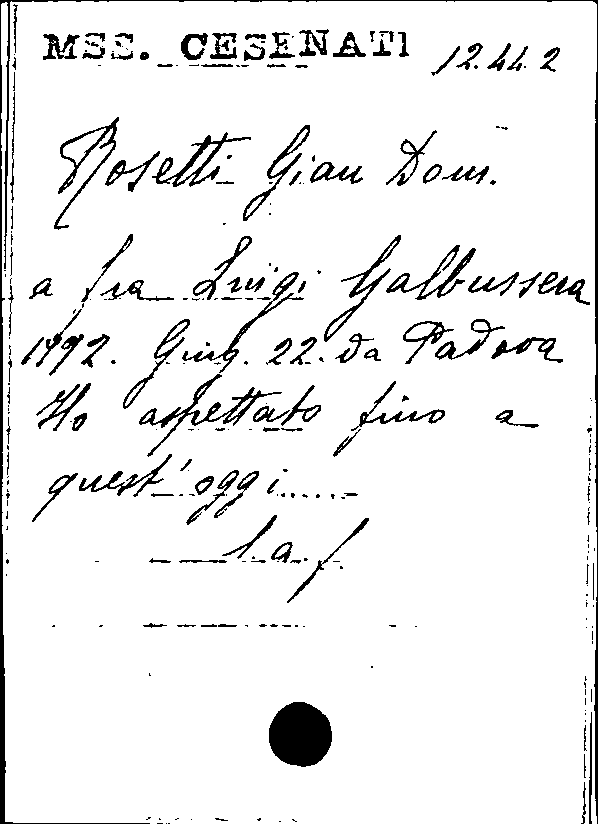 MSS. CESENATI 12.44.2
Rosetti Gian Dom.
a fra Luigi Galbussera
1792. Giug. 22. da Padova
Ho aspettato fino a
quest'oggi......
l. a. f.